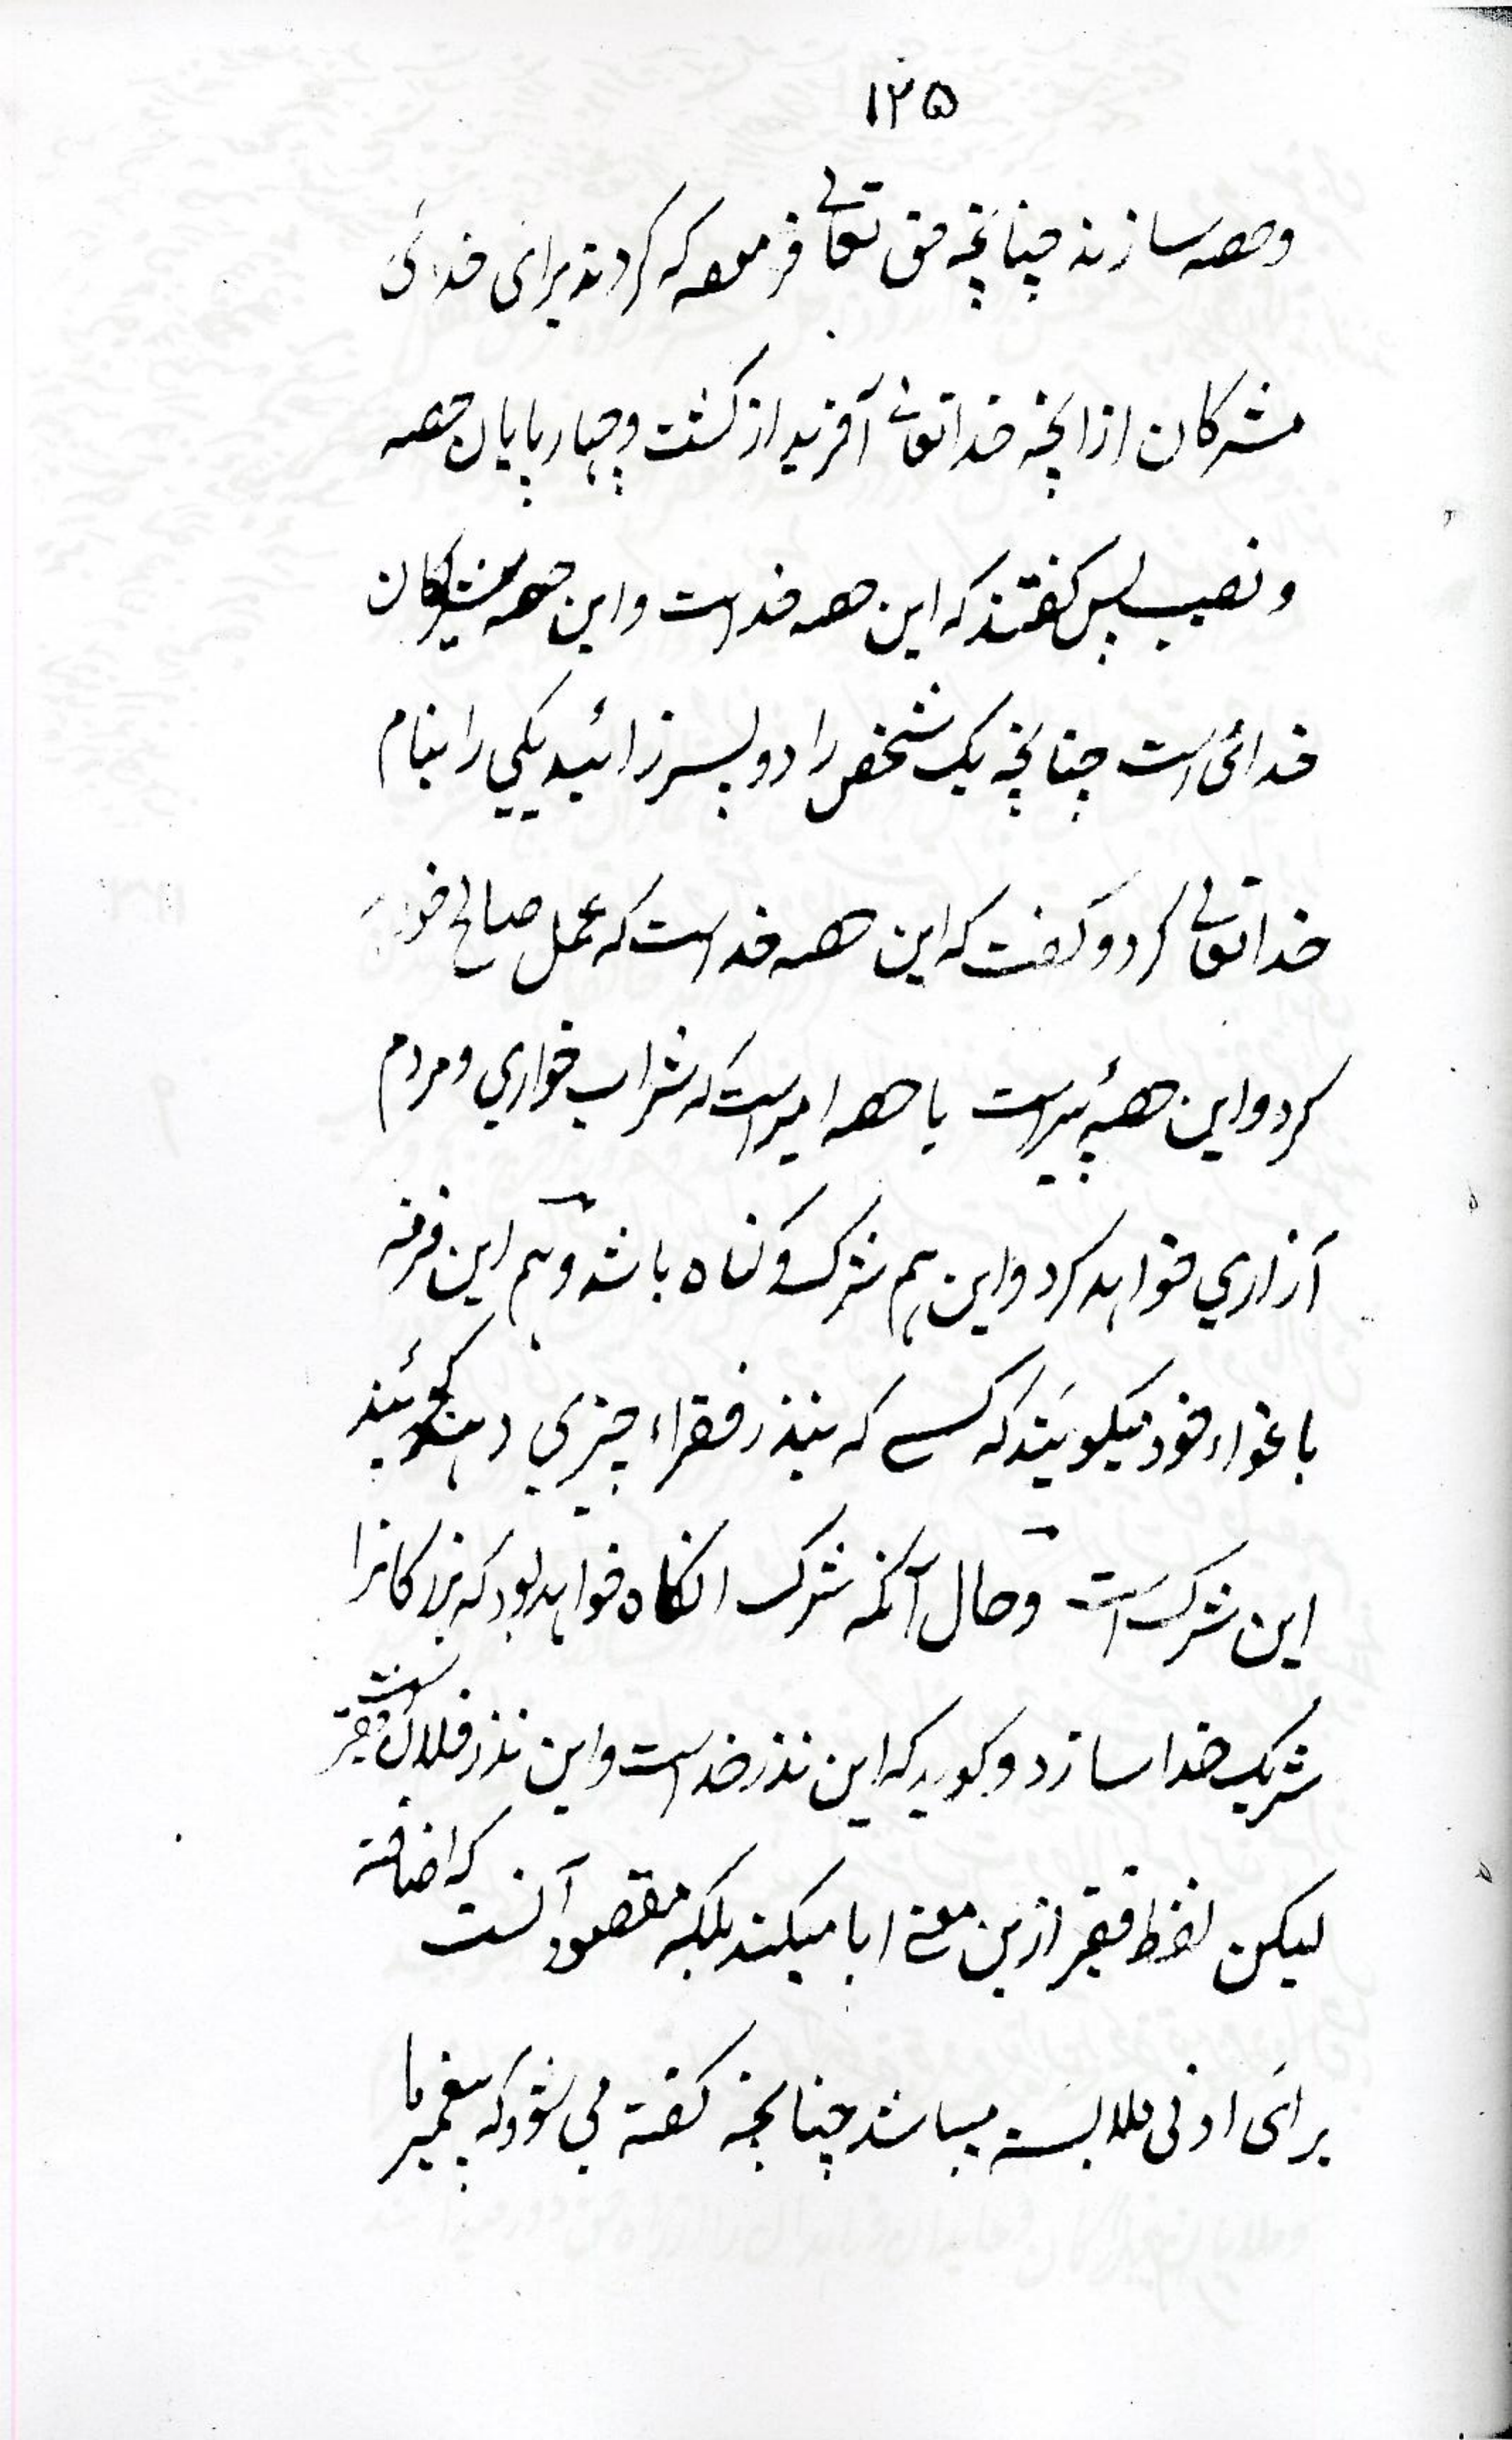 ۱۲۵
وحصه سازند چنانچه حق تعالی فرموده که کردند برای خدائی
مشرکان ازانچه خداتعالی آفرید از کشت و چهارپایان حصه
و نصیب پس کفتند که این حصه خداست و این حصه مشرکان
خدائی است چنانچه یک شخص را دو پسر زائید یکی را بنام
خداتعالی کرد و کفت که این حصه خداست که عمل صالح خواهد
کرد و این حصهٔ پیر است یا حصه امیر است که شراب خواری و مردم
آزاری خواهد کرد و این هم شرک و کناه باشد و هم این فرقه
باغواء خود میکویند که کسے که بنذر فقراء چیزی دهند کویند
این شرک است و حال آنکه شرک انکاه خواهد بود که بزرکانرا
شریک خدا سازد و کوید که این نذر خداست و این نذر فلان فقیر است
لیکن لفظ فقیر ازین معنے ابا میکند بلکه مقصود آنست که اضافته
برای ادنی ملابسته میباشد چنانچه کفته می شود که پیغمبر ما